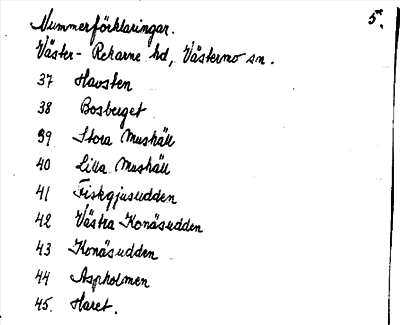 5.
Nummerförklaringar.
Väster-Rekarne hd, Västermo sn.
37 Havsten
38 Bosberget
39 Stora Mushäll
40 Lilla Mushäll
41 Fiskgjusudden
42 Västra Konäsudden
43 Konäsudden
44 Aspholmen
45. Haret.